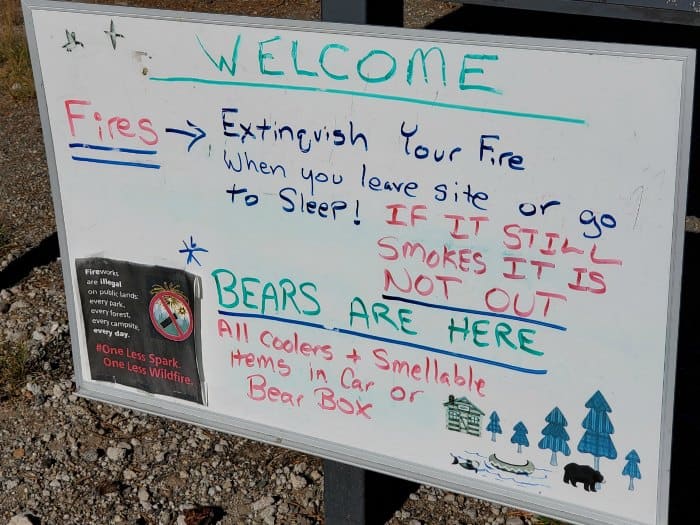 WELCOME
Fires → Extinguish Your Fire
When you leave site or go
to Sleep! IF IT STILL
SMOKES IT IS
NOT OUT
* BEARS ARE HERE
All Coolers + Smellable
items in Car or
Bear Box
Fireworks
are illegal
on public lands:
every park,
every forest,
every campsite,
every day.
#One Less Spark.
One Less Wildfire.